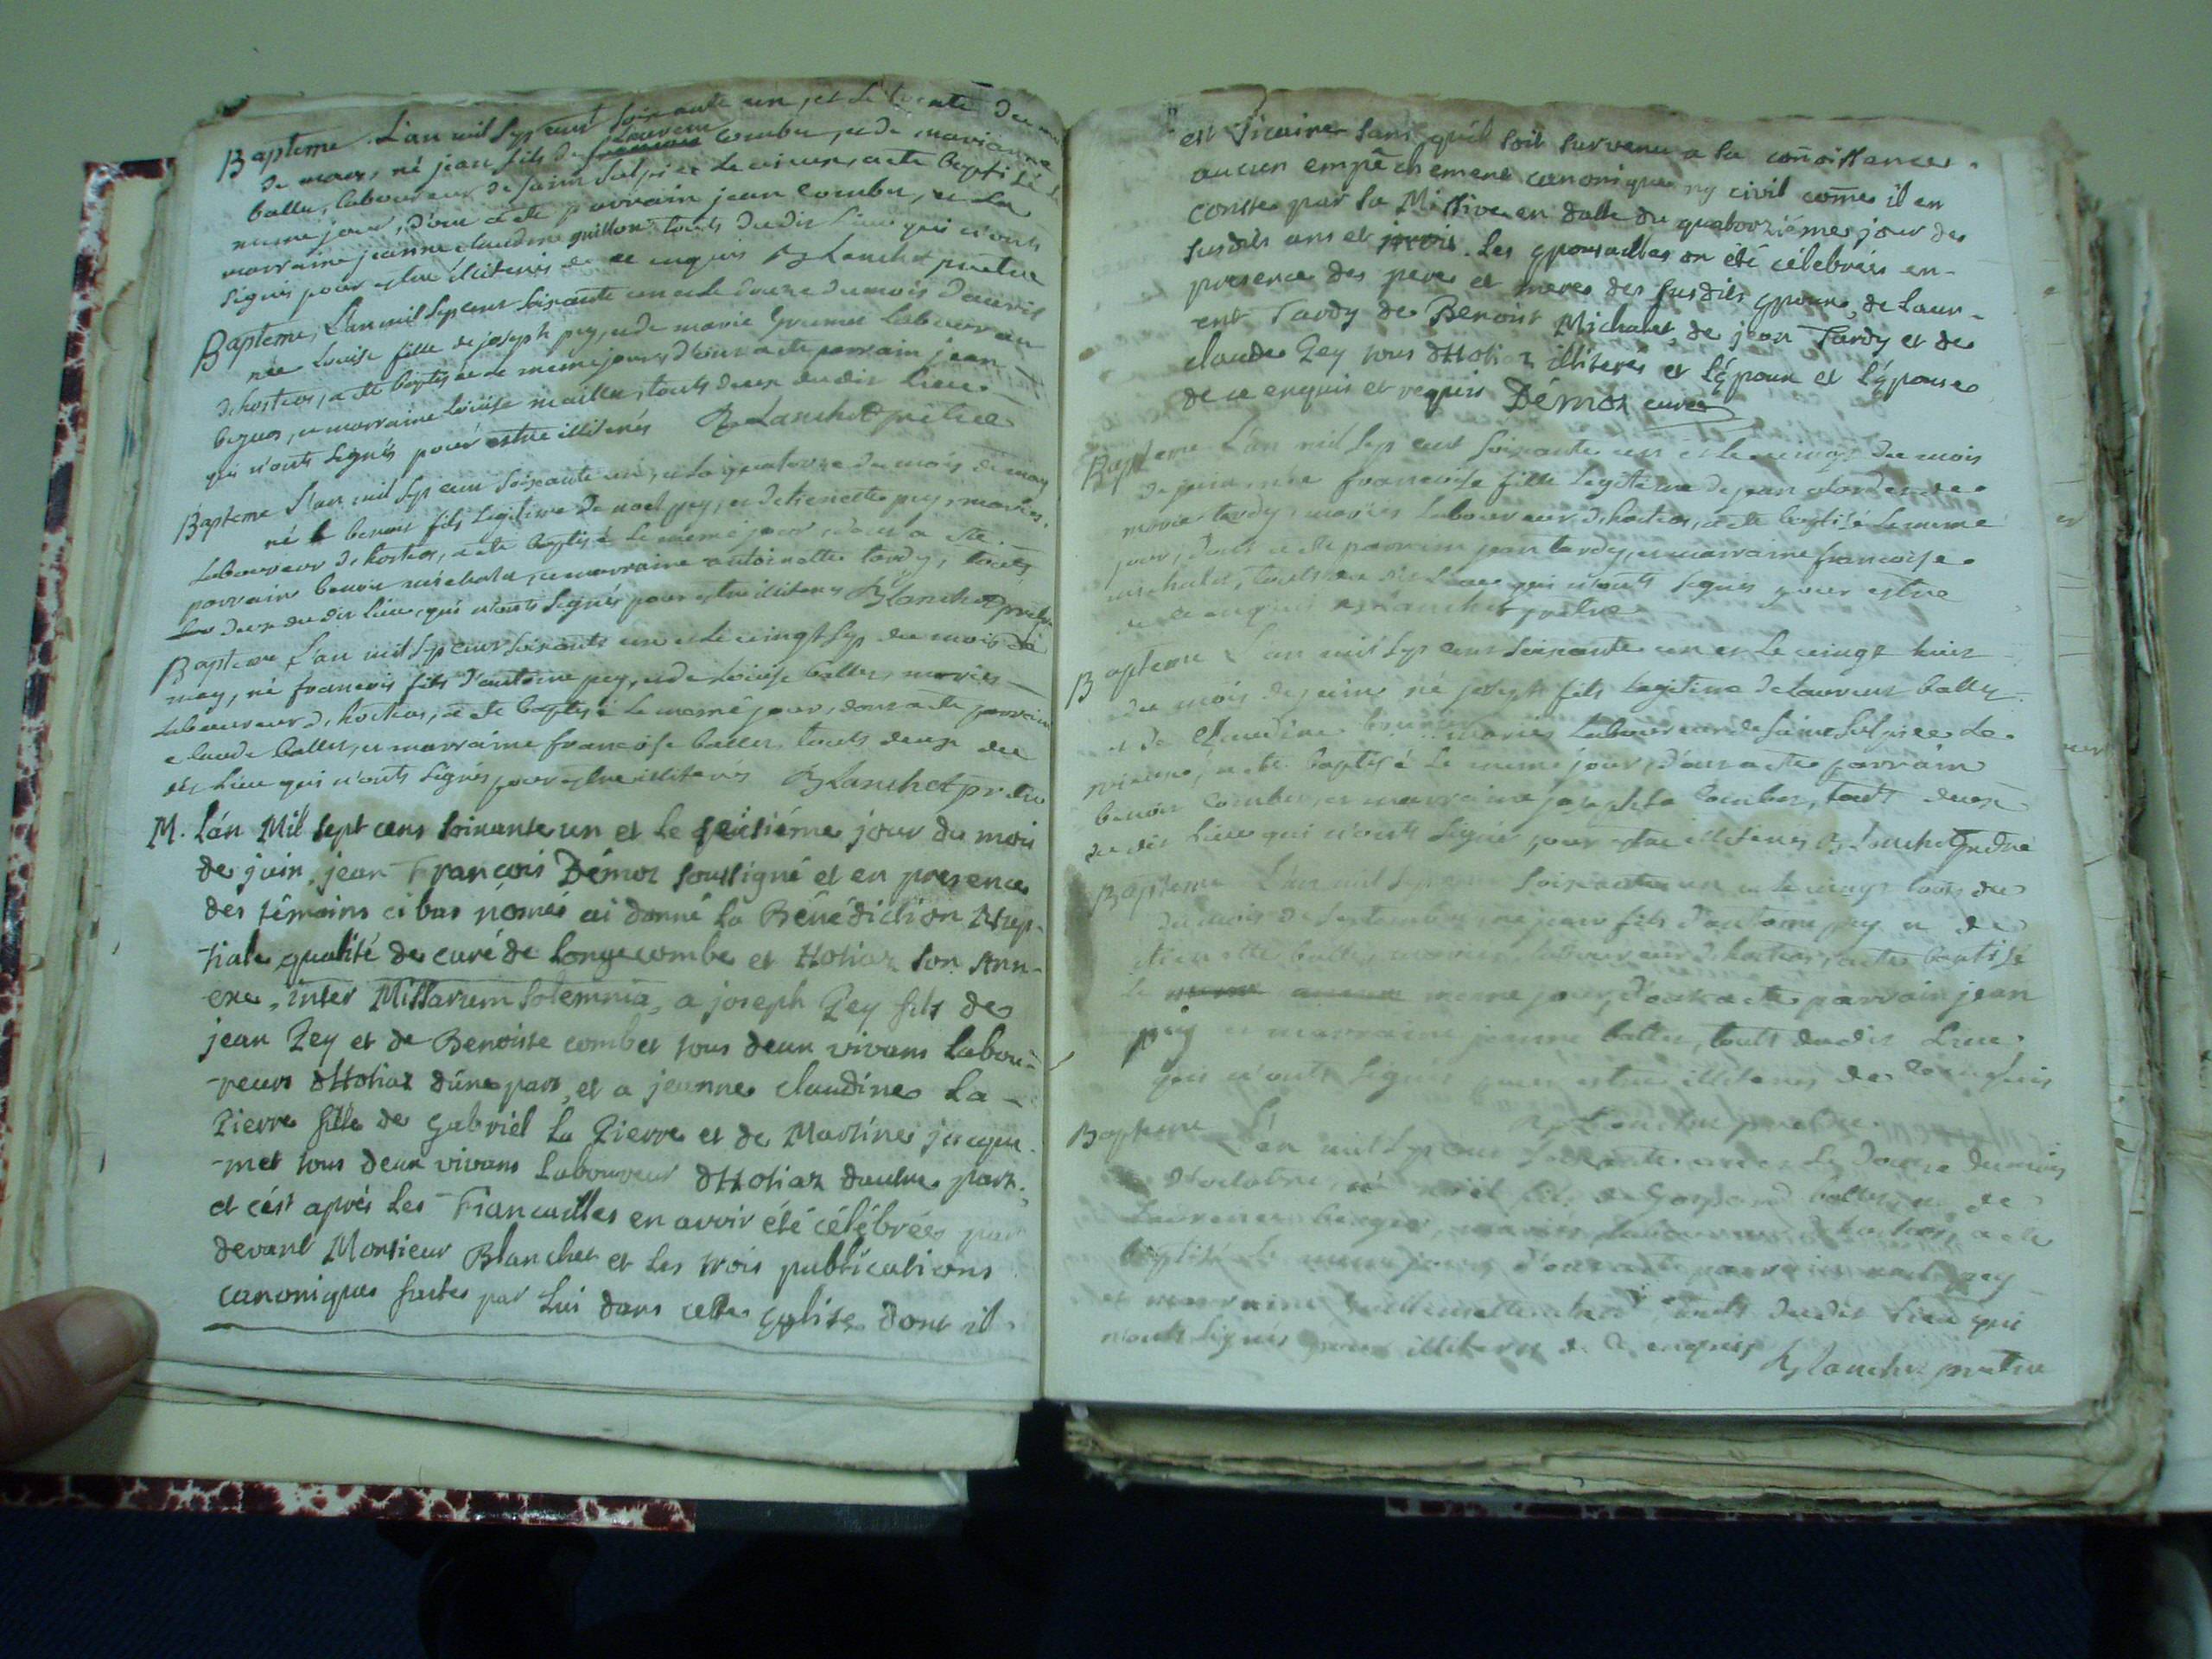 Bapteme L'an mil sept cent soixante un et le trente du mois
de mars, né jean fils de francois Laurent combet, et de marianne
ballet, laboureur de saint sulpice le vieux, a été baptisé le
meme jour, dont a été parrain jean combet, et la
marraine jeanne claudine guillon touts dudit lieu qui n'onts
signés pour estre illiterés de ce enquis Blanchet pretre
Bapteme, L'an mil sept cent soixante un et le douze du mois d'auril
née Louise fille de joseph pey, et de marie Grumet laboureur
d'hostias, a été baptisée le meme jour, dont a été parrain jean
, et marraine Louise , touts deux dudit lieu
qui n'onts signés pour estre illiterés Blanchet prêtre
Bapteme L'an mil sept cent soixante un, et le quatorze du mois de may
né benoit fils legitime de noel pey, et d'etienette pey, mariés,
Laboureur d'hostias, a été baptisé le meme jour, dont a été
parrain benoit michalet, et marraine antoinette tardy, touts
deux dudit lieu, qui n'onts signés pour estre illiterés Blanchet pretre
Bapteme L'an mil sept cent soixante un et le vingt sep du mois de
may, né francois fils d'antoine pey, et de Louise ballet, mariés
Laboureur d'hostias, a été baptisé le meme jour, dont a été parrain
claude ballet, et marraine francoise ballet touts deux du
dit lieu qui n'onts signés pour estre illiterés Blanchet pretre
M. L'án Mil sept cens soixante un et le seisiéme jour du mois
de juin, jean François Démoz soussigné et en presence
des témoins ci bas només ai donné la Bénédiction Nup-
-tiale qualité de curé de Longecombe et Hotiaz son Ann-
exe, inter Missarum solemnia, a joseph Pey fils de
jean Pey et de Benoiste combet tous deux vivans Labou-
-reurs d'Hotiaz dúne part, et a jeanne claudine La-
Pierre fille de Gabriel La Pierre et de Martine jacque-
-met tous deux vivans Laboureur d'Hotiaz dautre part,
et cést aprés les Fiancailles en avoir été célébrées par
devant Monsieur Blanchet et les trois publications
canoniques faites par lui dans cette Eglise dont il
est Vicaire sans quíl soit survenu a sa coñoissance
aucun empêchement canonique ny civil come il en
conste par sa Missive en datte du quatorziéme jour des
susdits ans et mois. Les Epousailles on été célebrées en-
presence des peres et meres des susdits Epoux, de Laur-
ent Tardy de Benoit Michalet, de jean Tardy et de
claude Pey tous d'Hotiaz illiterés et l'époux et l'épouse
de ce enquis et requis Démoz curé
Bapteme L'an mil sept cent soixante un et le vingt du mois
de juin, née francoise fille legitime de jean et de
marie tardy, mariés laboureur d'hostias, a été baptisé le meme
jour, dont a été parrain jean tardy, et marraine francoise
michalet, touts du dit lieu qui n'onts signés pour estre
de ce enquis Blanchet pretre
Bapteme L'an mil sept cent soixante un et le vingt huit
du mois de juin né joseph fils legitime de Laurent ballet
et de Claudine mariés laboureur de saint sulpice le
vieux, a été baptisé le meme jour, dont a été parrain
benoit combet, et marraine combet, touts deux
du dit lieu qui n'onts signés pour estre illiterés Blanchet pretre
Bapteme L'an mil sept cent soixante un et le vingt trois du
du mois de septembre, né jean fils d'antoine pey et de
etienette ballet, mariés laboureur d'hostias, a été baptisé
le meme jour, dont a été parrain jean
pey et marraine jeanne ballet, touts dudit lieu,
qui n'onts signés pour estre illiterés de ce enquis
Blanchet pretre
Bapteme L'an mil sept cent soixante un et le douze du mois
d'octobre, né noël fils de Gaspard ballet, et de
Laurence , mariés, laboureur d'hostias, a été
baptisé le meme jour, dont a été parrain noel pey
et marraine , touts dudit lieu qui
n'onts signés pour illiterés de ce enquis
Blanchet pretre